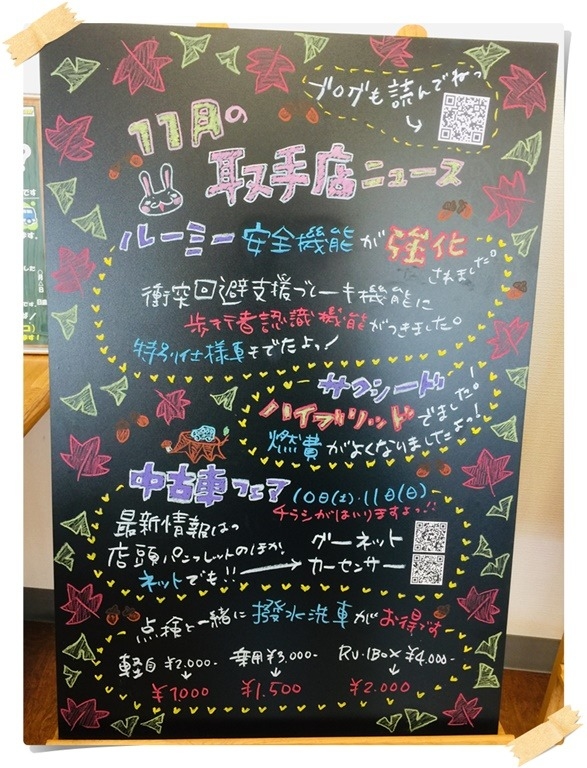 ブログも読んでねっ
11月の
取手店ニュース
ルーミー 安全機能が強化
されました。
衝突回避支援ブレーキ機能に
歩行者認識機能がつきました。
特別仕様車までたよっ!
サクシード
ハイブリッドでました。!
燃費がよくなりましたよっ!
中古車フェア 10日(土)・11日(日)
チラシがはいりますよっ!!
最新情報はっ
店頭パンフレットのほか、
ネットでも!!
グーネット
カーセンサー
点検と一緒に撥水洗車がお得です
軽自 ¥2,000- 乗用 ¥3,000- RV・1BOX ¥4,000-
¥1000 ¥1,500 ¥2,000